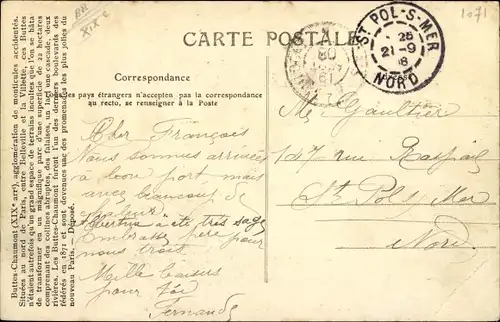 BN
XIXe
1071
CARTE POSTALE
Correspondance
Tous les pays étrangers n'acceptent pas la correspondance
au recto, se renseigner à la Poste
ST POL-S-MER
25
21-9
NORD
Buttes-Chaumont (XIXe arrt), agglomération de monticules accidentés.
Située au nord de Paris, entre Belleville et la Villette, ces Buttes
n'étaient autrefois qu'un grand espace de terrains incultes que l'on se hâta
de transformer en un magnifique parc d'une superficie de 22 hectares
avec des collines abruptes, des falaises, un lac, une cascade, deux
rivières. Les Buttes-Chaumont furent l'un des derniers boulevards des
fédérés en 1871 et sont devenues une des promenades les plus jolies du
nouveau Paris. — Déposé.
Cher Français
Nous sommes arrivées
à bon port mais
avec beaucoup de
a été très sage
Embrasse père pour
nous trois
Mille baisers
pour toi
Fernande
Me Gaultier
147 rue Raspail
St Pol s/ Mer
Nord